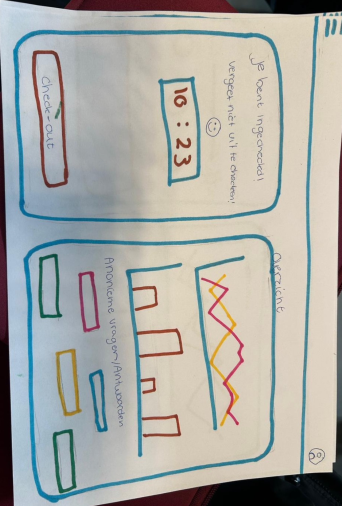 Je bent ingecheckd!
vergeet niet uit te checken!
10:23
Check-out
Overzicht
Anonieme vragen/Antwoorden